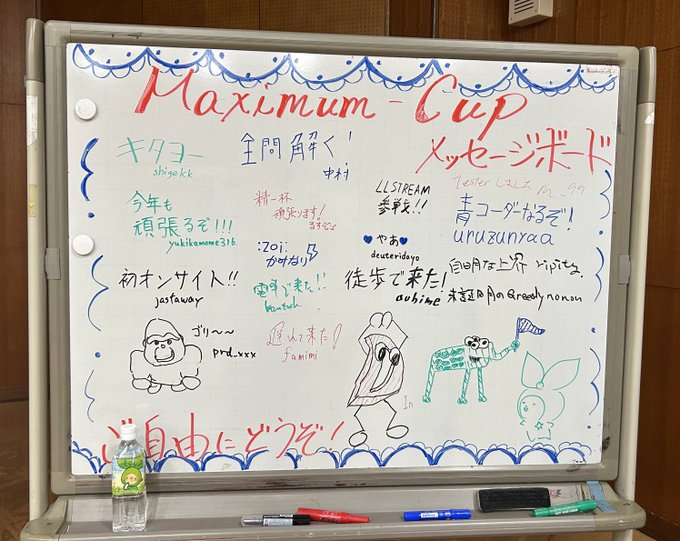 Maximum-Cup
メッセージボード
キタヨー
shigekk
全問解く!
中村
LLSTREAM
参戦!!
Tester しました m_99
今年も
頑張るぞ!!!
yukikamome316
精一杯
頑張ります!
:zoi:
かみなり
やあ
deuteridayo
青コーダーなるぞ!
uruzunyaa
初オンサイト!!
jastaway
電車で来た!!
徒歩で来た!
auhime
自明な上界 ripity
未証明のGreedy nonon
ゴリ〜〜
prd_xxx
遅れて来た!
famimi
In
ご自由にどうぞ!